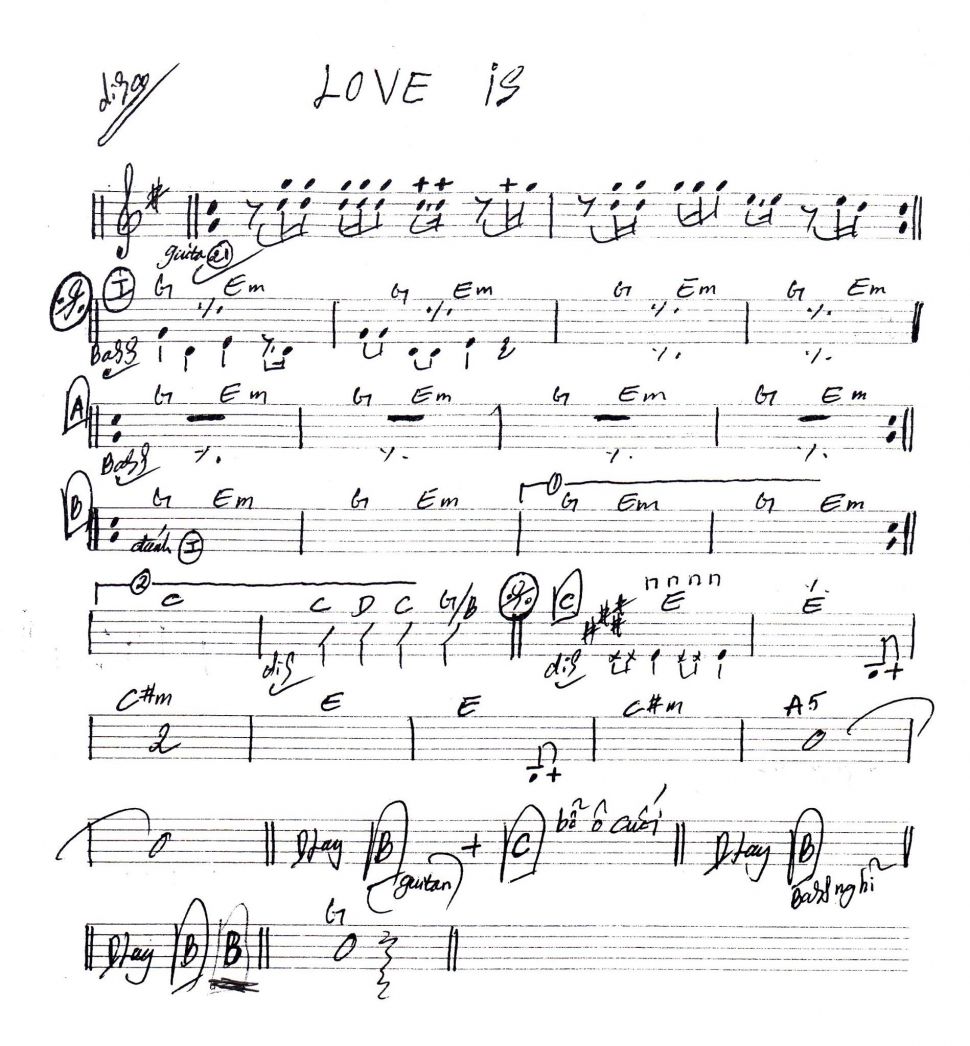 disco LOVE is
guita 2
I G Em G Em G Em G Em
Bass
A G Em G Em G Em G Em
Bass
B G Em G Em 1 G Em G Em
đánh I
2 C C D C G/B C E E
dis dis
C#m E E C#m A5
2
Play B + C bỏ ô cuối Play B
guitar Bass nghỉ
G
Play B B